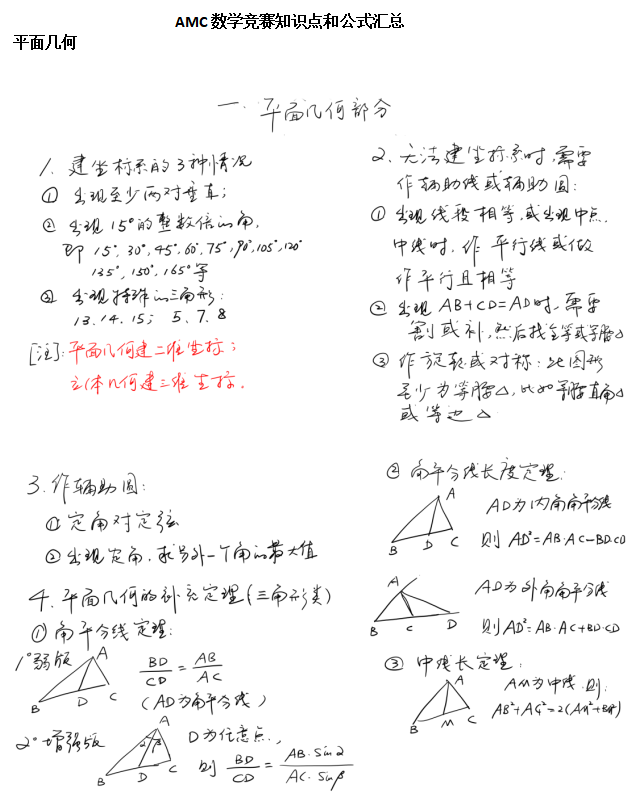 AMC 数学竞赛知识点和公式汇总
平面几何
一. 平面几何部分
1. 建坐标系的3种情况
① 出现至少两对垂直;
② 出现15°的整数倍的角,
即 15°, 30°, 45°, 60°, 75°, 90°, 105°, 120°
135°, 150°, 165°等
③ 出现特殊的三角形:
13. 14. 15; 5. 7. 8
[注]: 平面几何建二维坐标;
立体几何建三维坐标.
2. 无法建坐标系时, 需要
作辅助线或辅助圆:
① 出现线段相等, 或出现中点.
中线时, 作平行线或做
作平行且相等
② 出现 AB+CD=AD时, 需要
割或补, 然后找全等或等腰△
③ 作旋转或对称: 此图形
至少为等腰△, 比如等腰直角△
或等边△
3. 作辅助圆:
① 定角对定弦
② 出现定角, 求另外一个角的最大值
4. 平面几何的补充定理(三角形类)
① 角平分线定理:
1°弱版
A
B
D
C
BD/CD = AB/AC
(AD为角平分线)
2°增强版
A
α
β
B
D
C
D为任意点,
则 BD/CD = AB·sinα/AC·sinβ
② 角平分线长度定理:
A
B
D
C
AD为内角角平分线
则 AD²=AB·AC-BD·CD
A
B
C
D
AD为外角角平分线
则AD²=AB·AC+BD·CD
③ 中线长定理:
A
B
M
C
AM为中线. 则:
AB²+AC²=2(AM²+BM²)